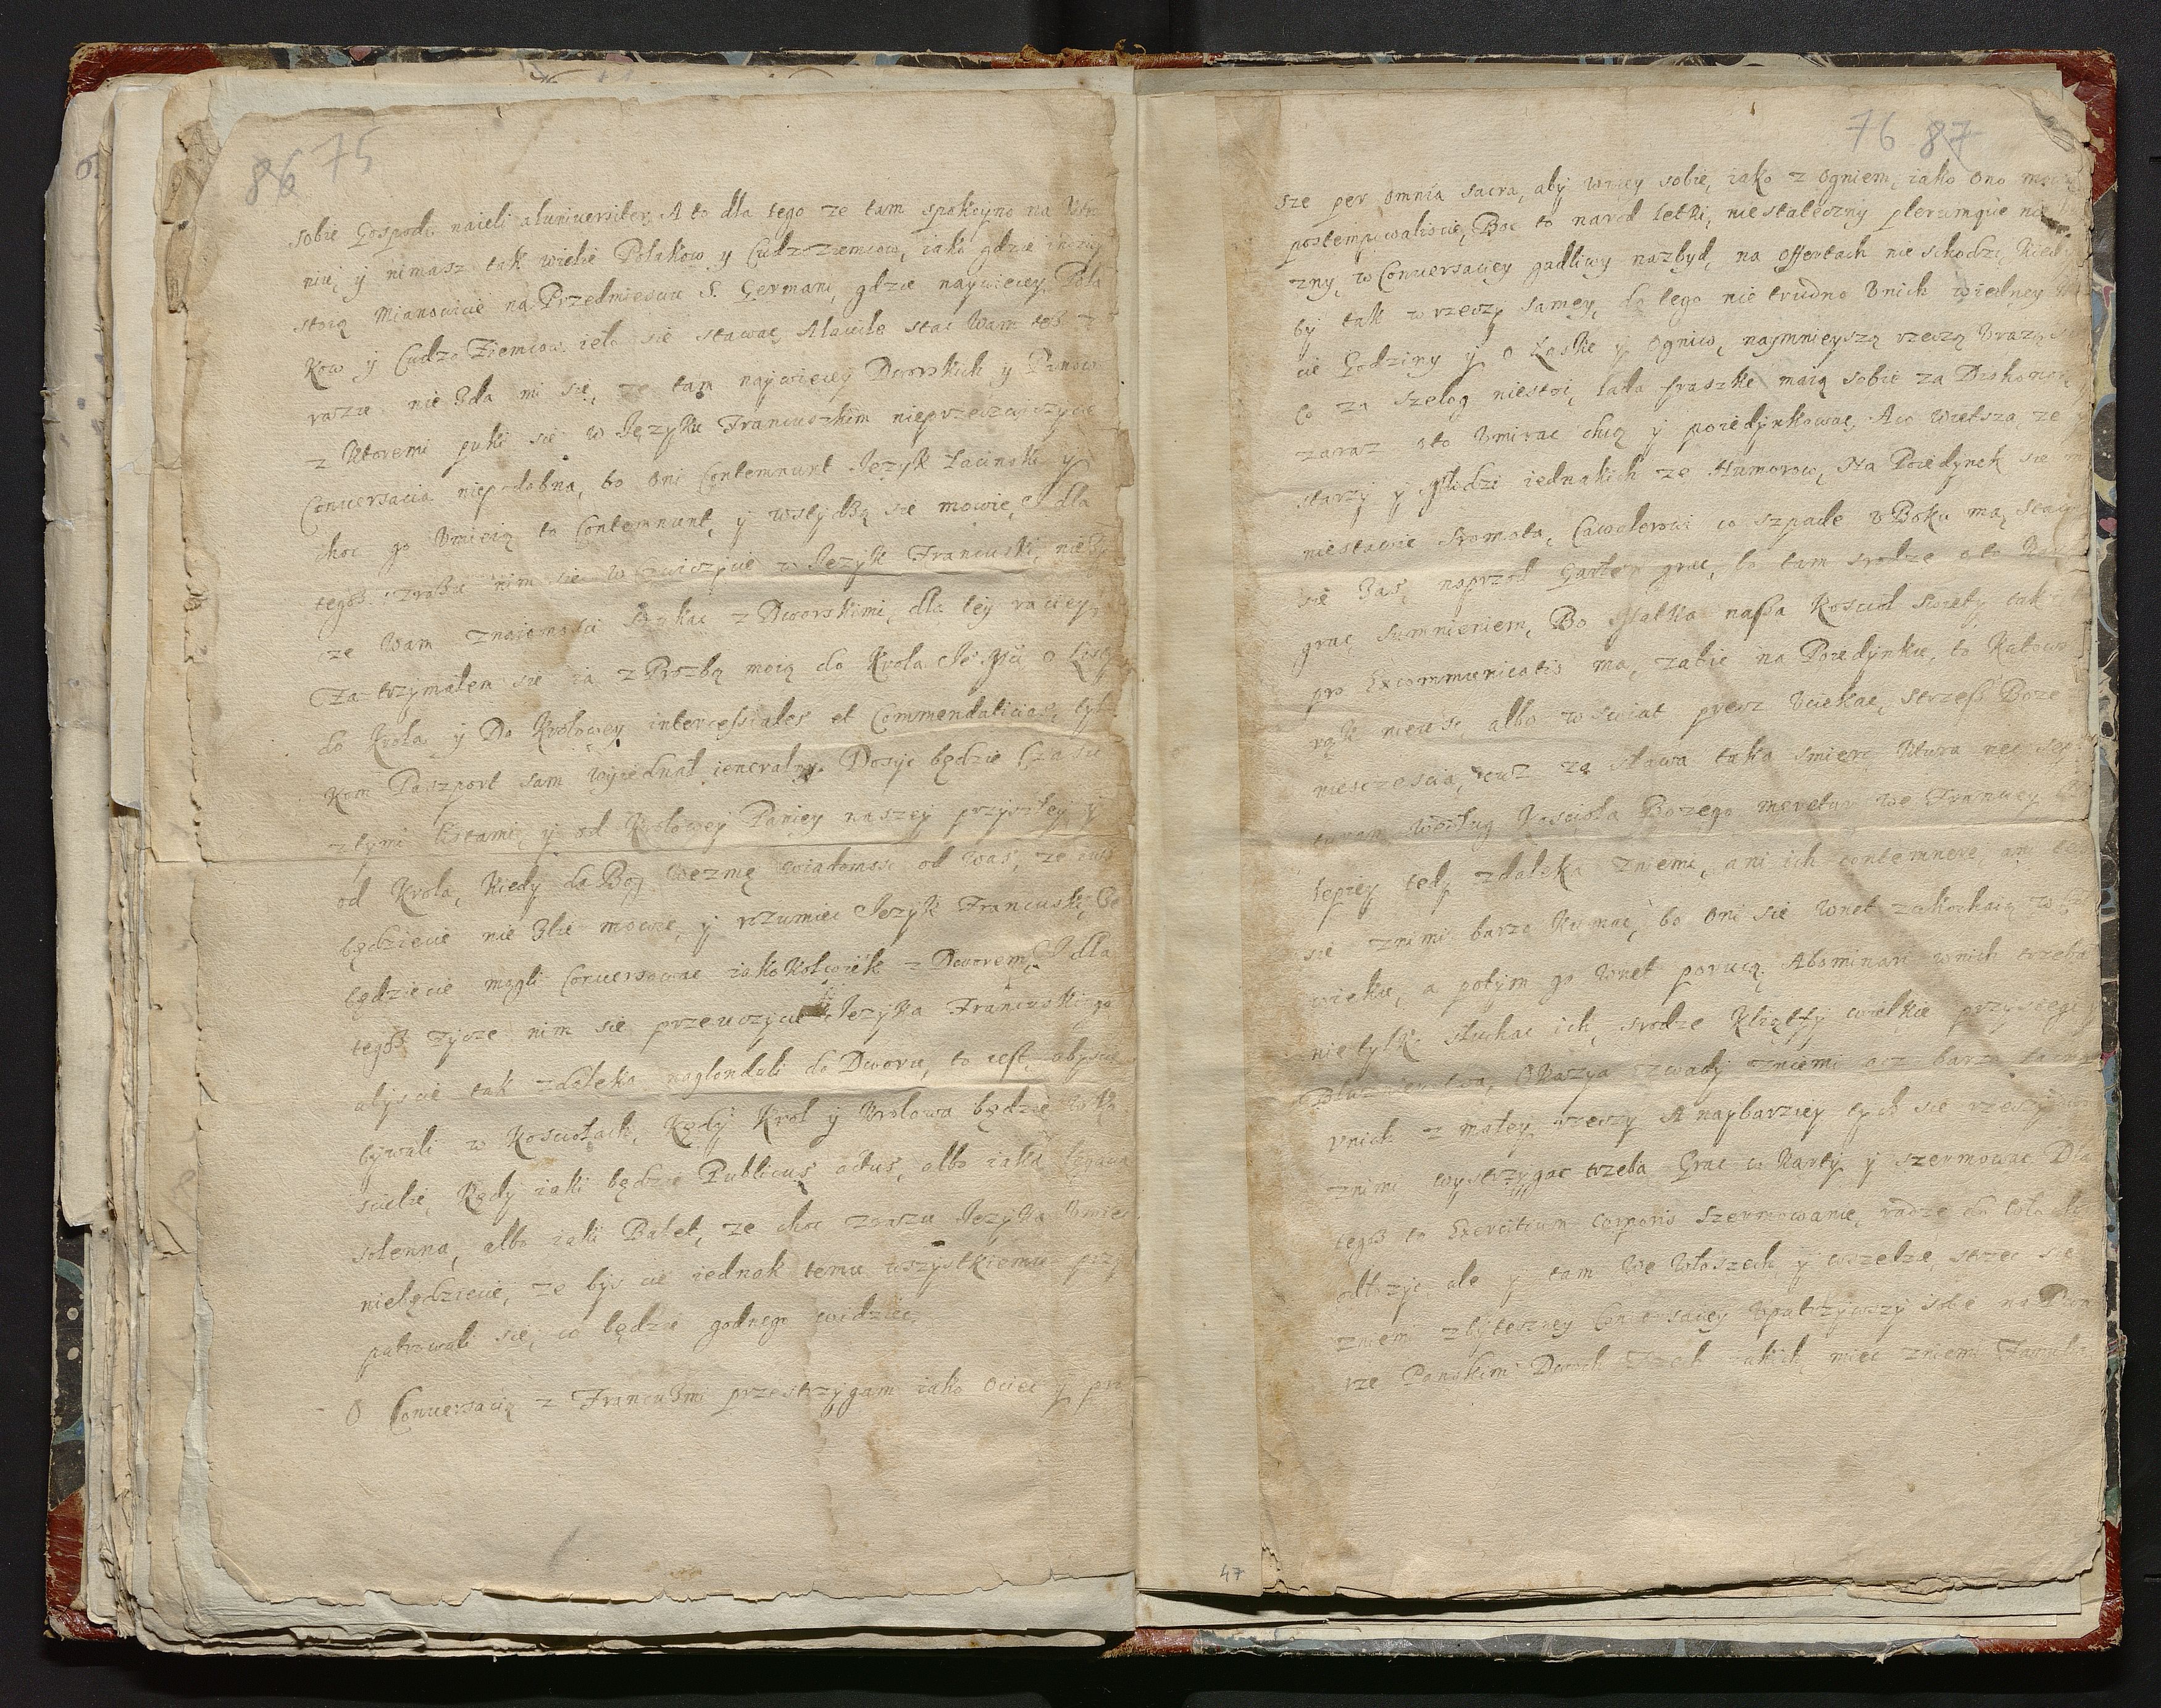 86 75
sobie Gospodę naieli a luniuersiter, A to dla tego ze tam spokoyno na
niu, y nimasz tak wiele Polakow y Cudzoziemcow, iako gdzie
stoią Mianowicie na Przedmiesciu S. Germani, gdzie naywiecey Pola
kow y Cudzo Ziemcow ielo sie stawac, Alawile stac Wam tesz
razie nie Zda mi się, ze tam naywiecey Dworskich y Panow
z Ktoremi puki sie w Języku Francuszkim nieprzeuczycie
Conuersacia niepodobna, bo oni Contemnunt Język Łacinski y
choc go Vmieią to Contemnunt, y wstydzą sie mowic, I dla
tegosz nim sie w Cwiczycie w Język Francuski,
ze Wam znaiomosci szukac z Dworskimi, dla tey raciey
Zatrzymałem się ia z Prozbą moią do Krola Je Mci o Listy
do Krola y Do Krolowey intercessiales et Commendaticias, tyl
kom Paszport sam wyiednał ieneralny. Dosyc będzie Czasu
z tymi listami, y od Krolowey Paniey naszey przyszłey y
od Krola, Kiedy da Bog Wezmę wiadomosc od Was, ze iusz
będziecie nie Zle mowic, y rozumiec Język Francuski,
będziecie mogli Conuersowac iakokolwiek z Dworem, I dla
tegosz życze nim sie przeuczycie Języka Francuskiego
abyscie tak zdaleka naglondali do Dworu, to iest abyscie
bywali w Kosciołach, Kędy Krol y Krolowa będzie w Ko
sciele, Kędy iaki będzie Publicus actus, albo iaka
solenna, albo iaki Balet, ze choc zrazu Języka Vmiec
niebędziecie, ze bys cie iednak temu wszystkiemu przy
patrowali się, co będzie godnego widziec.
O Conuersacią z Francuzmi przestrzygam iako Ociec y pro
76 87
sze per omnia sacra, aby wniey sobie, iako z Ogniem, iako ono
postempowaliscie, Boc to narod letki, niestateczny plerumque
zny, w Conuersaciey gadliwy nazbyt, na offertach nie schodzi, Kiedy
by tak w rzeczy samey, do tego nie trudno Vnich wiedney
cie Godziny y o Łaske y Ogniw, naymnieyszą rzeczą Vrazą
Co za szelog niestoi, lada fraszke maią sobie za Dishonor,
zaraz oto Vmirac chcą y poiedynkowac, Aco Wietsza, ze
starzy y Młodzi iednakich ze Humorow, Na Poiedynek sie
niestawic sromota, Cawalerowi co szpade v Boku ma, stawic
się Zas, naprzod Gardłem grac, bo tam srodze oto
grac sumnieniem, Bo Matka nassa Kosciol swięty tak
pro Excommunicatis ma, zabic na Poiedynku, to Katowi
rąk niewysc, albo w swiat precz Vciekac, strzesz Boze
niesczescia, iusz za sława taka smierc Ktura nec sepul
turam według Kosciola Bozego meretur we Franciey
lepiey tedy zdaleka zniemi, ani ich contemnere ani tesz
sie znimi barzo Kumac, bo oni sie wnet zakochaią w Czło
wieku, a potym go wnet porucą. Abominari wnich trzeba
nie tylko słuchac ich, srodze Klątfy wielkie przysięgi y
Bluznierstwa, Okazya zwady zniemi acz barzo łacna
vnich z małey rzeczy A naybarziey tych sie rzeczy
znimi wystrzygac trzeba Grac w Karty y szermowac Dla
tegosz to Exercitium Corporis szermowanie, radzę do Włoch
odłozyc, ale y tam we Włoszech y wszedzie, strzec sie
zniemi zbyteczney Conuersaciey Vpatrzywszy sobie na Dwo
rze Panskim Dwoch Trzech takich, miec zniemi Familia
47